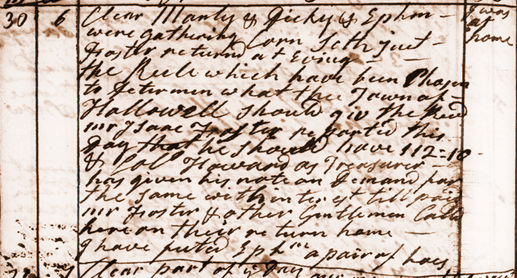 30 6 Clear Manly & Gicky & Ephm – I was
were gathering Corn Seth just – at
Foster returnd at Evng – – home
the Refe which have been Chosen
to determen what the Town of
Hallowell should give the Revd
mr Isaac Foster reported this
Day that he should have 112=10
& Coll Howard as Treasurer
has given his note on Demand for
the Same with interest till paid
mr Foster & other Gentlemen Calld
here on their return home –
I have futed Ephm a pair of hoes
Clear part of ye Day